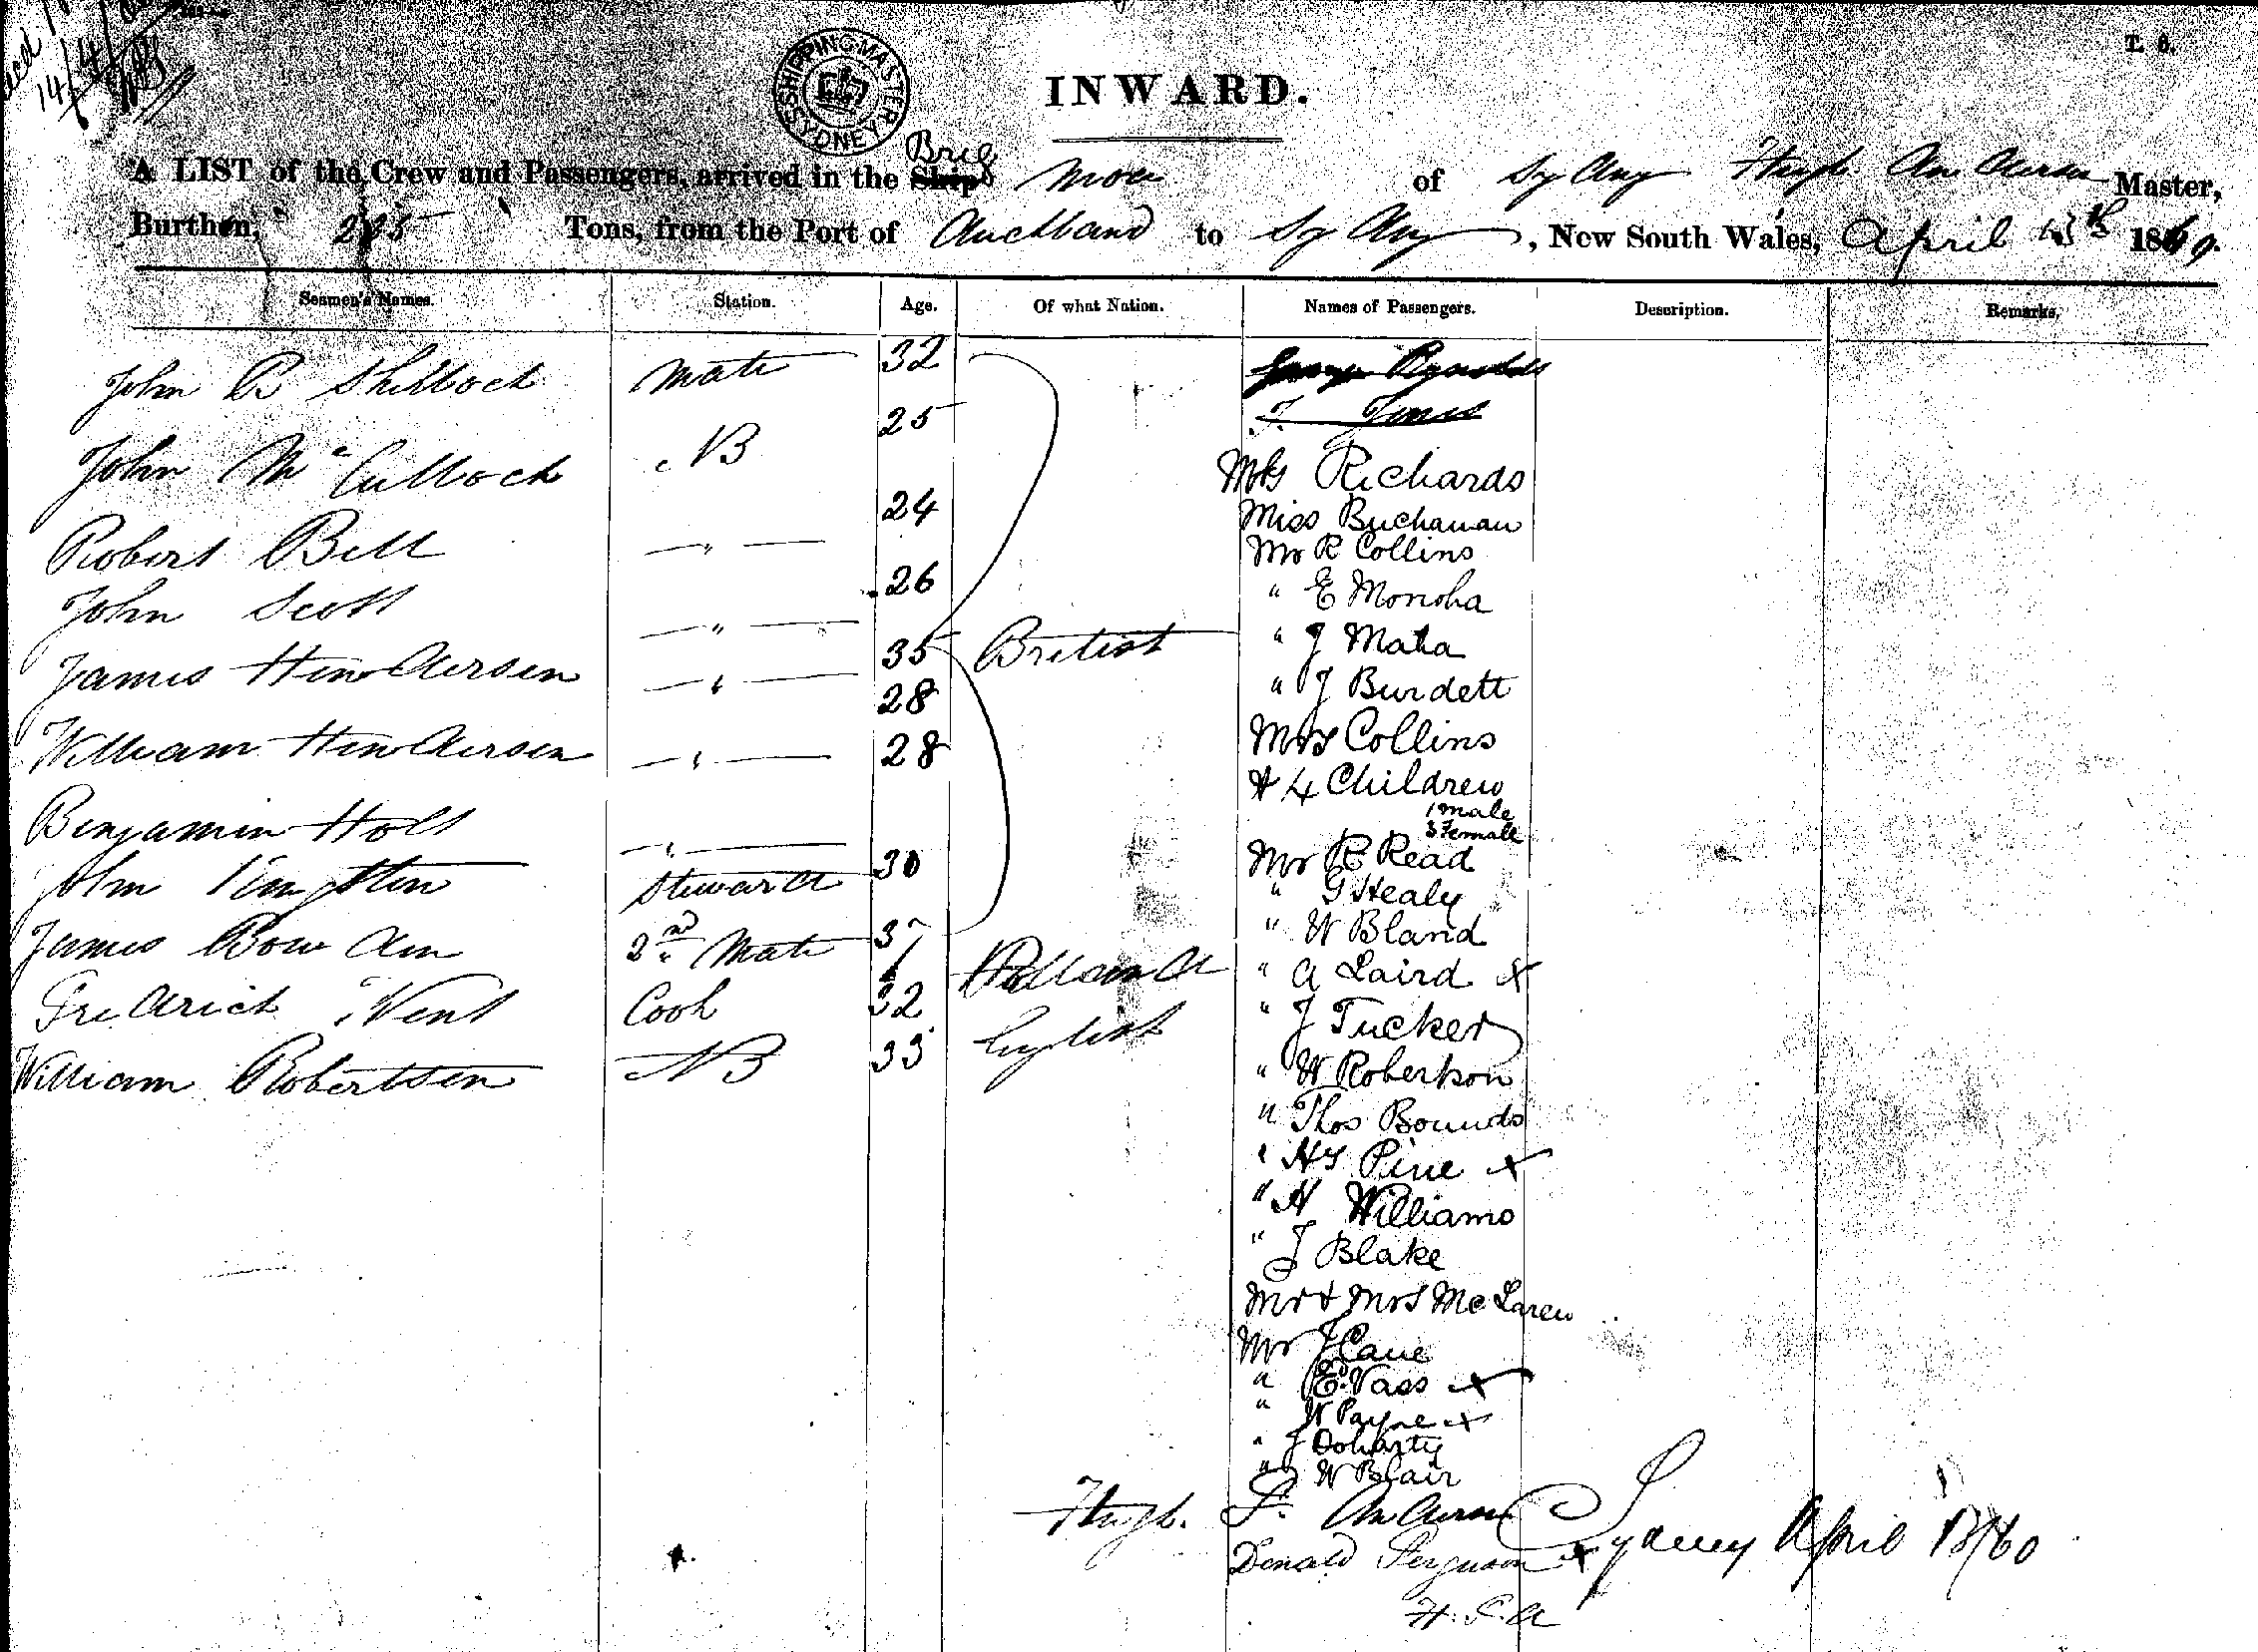 14/4/
SHIPPING MASTER SYDNEY
T. 6.
INWARD.
Brig
A LIST of the Crew and Passengers, arrived in the Ship Moa of Sydney Hugh Anderson Master,
Burthen, Tons, from the Port of Auckland to Sydney, New South Wales, April 13th 1860.
Seamen's Names. Station. Age. Of what Nation. Names of Passengers. Description. Remarks.
John B Shillock Mate 32
John McCulloch AB 25
Robert Bell " 24
John Scott " 26
James Hendersen " 35 British
William Hendersen " 28
Benjamin Holt " 28
John Steward 30
James Bowden 2nd Mate 37
Fredrick Went Cook 32
William Robertsen AB 33 English
George Reynolds
J. Jones
Mrs Richards
Miss Buchanan
Mr R Collins
" E Monoha
" J Maha
" J Burdett
Mrs Collins
& 4 Children
1 Male
3 Female
Mr R Read
" G Healy
" W Bland
" A Laird x
" J Tucker
" W Robertson
" Thos Bounds
" Hy Pine x
" H Williams
" J Blake
Mr & Mrs McLaren
Mr J Cane
" E. Vass x
" W Payne x
" J Doharty
" W Blair
Hugh. F. Anderson Sydney April 13/60
Donald Ferguson x
H. F. A